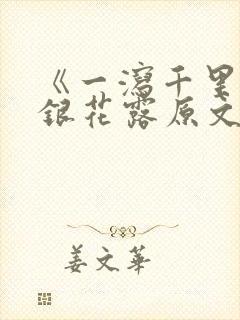 《一泻千里
银花露原文
姜文华